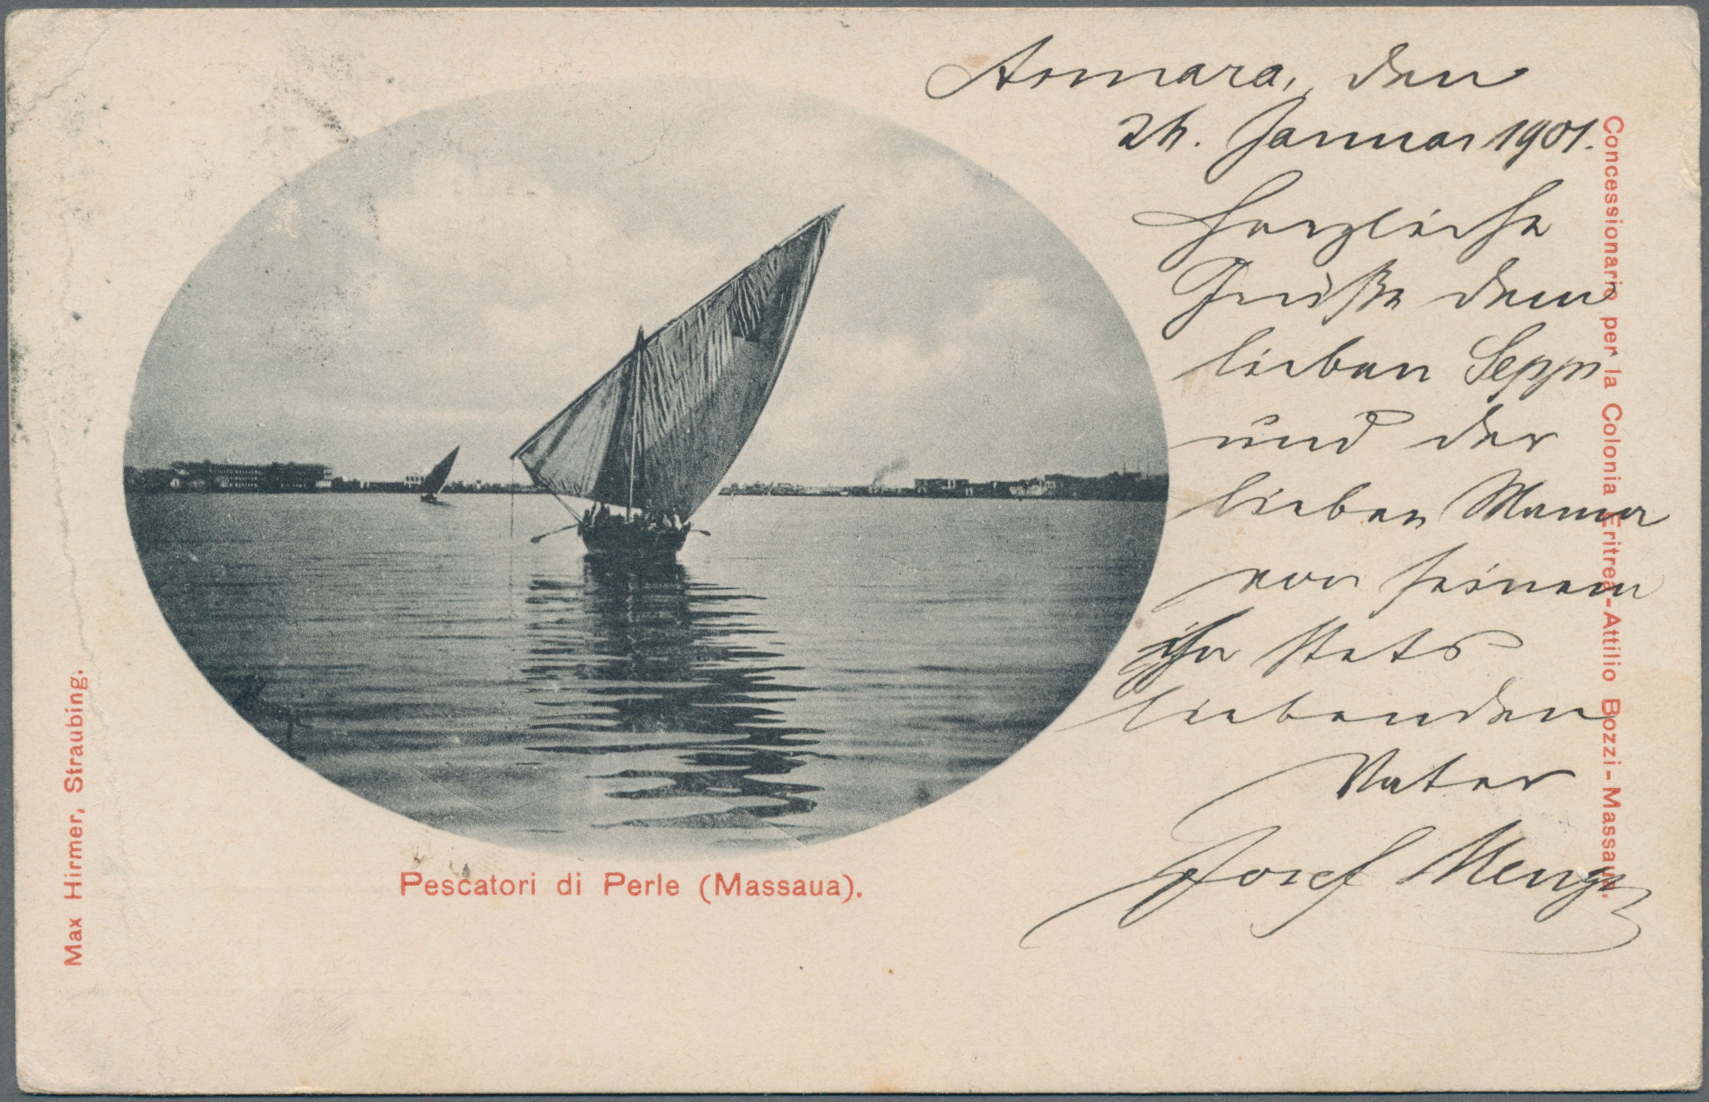 Asmara, den
24. Januar 1901.
Herzliche
Grüße dem
lieben Sepp
und der
lieben Mama
von seinem
ihr stets
liebenden
Vater
Josef Menges
Pescatori di Perle (Massaua).
Max Hirmer, Straubing.
Concessionario per la Colonia Eritrea-Attilio Bozzi-Massaua.